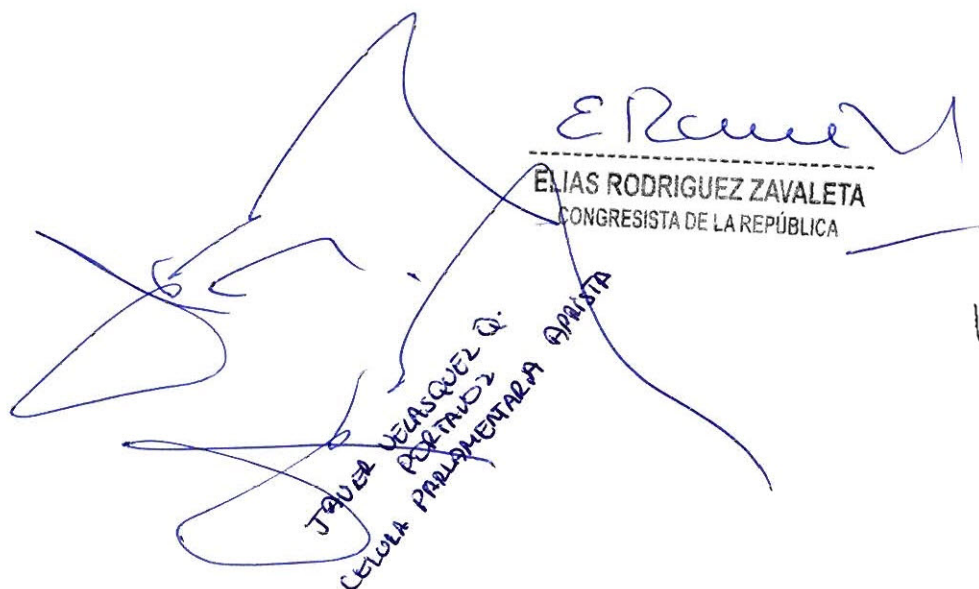 ELIAS RODRIGUEZ ZAVALETA
CONGRESISTA DE LA REPÚBLICA
JAVIER VELASQUEZ Q.
PORTAVOZ
CELULA PARLAMENTARIA APRISTA